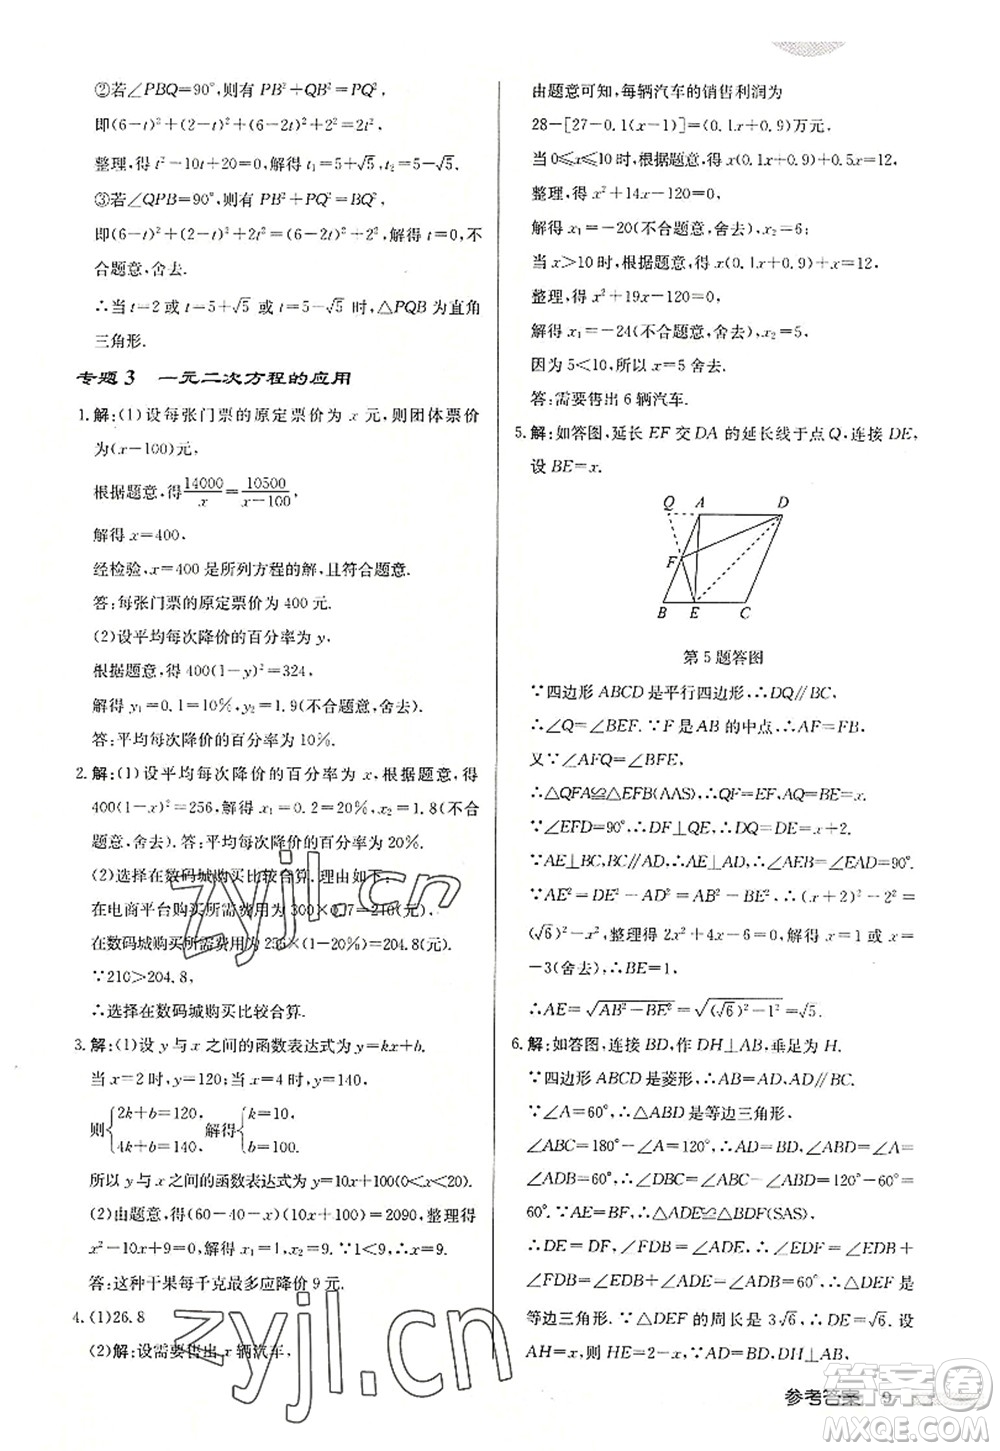 ②若∠PBQ=90°,则有 PB²+BQ²=PQ²,
即(6-t)²+(2t)²+(6-2t)²=t²+2²,
整理,得 t²-10t+20=0,解得 t₁=5+√5,t₂=5-√5.
③若∠QPB=90°,则有 PB²+PQ²=BQ²,
合题意,舍去.
∴当 t=2 或 t=5+√5 或 t=5-√5 时,△PQB 为直角
三角形.
专题 3 一元二次方程的应用
1.解:(1)设每张门票的原定票价为 x 元,则团体票价
为(x-100)元,
根据题意,得14000/x=10500/(x-100),
解得 x=400,
经检验,x=400 是所列方程的解,且符合题意.
答:每张门票的原定票价为 400 元.
(2)设平均每次降价的百分率为 y,
根据题意,得 400(1-y)²=324,
解得 y₁=0.1=10%,y₂=1.9(不合题意,舍去).
答:平均每次降价的百分率为 10%.
2.解:(1)设平均每次降价的百分率为 x,根据题意,得
400(1-x)²=256,解得 x₁=0.2=20%,x₂=1.8(不合
题意,舍去).答:平均每次降价的百分率为 20%.
(2)选择在数码城购买比较合算.理由如下:
在电商平台购买所需费用为 300×0.7=210(元),
在数码城购买所需费用为 256×(1-20%)=204.8(元).
∵210>204.8,
∴选择在数码城购买比较合算.
3.解:(1)设 y 与 x 之间的函数表达式为 y=kx+b.
当 x=2 时,y=120;当 x=4 时,y=140,
则{2k+b=120, 4k+b=140, 解得{k=10, b=100.
所以 y 与 x 之间的函数表达式为 y=10x+100(0<x<20).
(2)由题意,得(60-40-x)(10x+100)=2090,整理,得
x²-10x+9=0.解得 x₁=1,x₂=9.∵1<9,∴x=9.
答:这种干果每千克最多应降价 9 元.
4.(1)26.8
(2)解:设需要售出 x 辆汽车,
由题意可知,每辆汽车的销售利润为
28-[27-0.1(x-1)]=(0.1x+0.9)万元,
当 0≤x≤10 时,根据题意,得 x(0.1x+0.9)+0.5x=12,
整理,得 x²+14x-120=0,
解得 x₁=-20(不合题意,舍去),x₂=6;
当 x>10 时,根据题意,得 x(0.1x+0.9)+x=12,
整理,得 x²+19x-120=0,
解得 x₁=-24(不合题意,舍去),x₂=5,
因为 5<10,所以 x₂=5 舍去.
答:需要售出 6 辆汽车.
5.解:如答图,延长 EF 交 DA 的延长线于点 Q,连接 DE,
设 BE=x.
Q A D
F
B E C
第 5 题答图
∵四边形 ABCD 是平行四边形,∴DQ∥BC,
∴∠Q=∠BEF.∵F 是 AB 的中点,∴AF=FB,
又∵∠AFQ=∠BFE,
∴△QFA≌△EFB(AAS),∴QF=EF,AQ=BE=x,
∵∠EFD=90°,∴DF⊥QE,∴DQ=DE=x+2.
∵AE⊥BC,BC∥AD,∴AE⊥AD,∴∠AEB=∠EAD=90°.
∵AE²=DE²-AD²=AB²-BE²,∴(x+2)²-2²=
(√6)²-x²,整理得 2x²+4x-6=0,解得 x=1 或 x=
-3(舍去),∴BE=1.
∴AE=√(AB²-BE²)=√((√6)²-1²)=√5.
6.解:如答图,连接 BD,作 DH⊥AB,垂足为 H.
∵四边形 ABCD 是菱形,∴AD=AB,AD∥BC.
∵∠A=60°,∴△ABD 是等边三角形,
∠ABC=180°-∠A=120°,∴AD=BD,∠ABD=∠A=
∠ADB=60°,∴∠DBC=∠ABC-∠ABD=∠A=
60°.∵AE=BF,∴△ADE≌△BDF(SAS),∴
DE=DF,∠FDB=∠EDA,∴∠EDF=∠EDB+
∠FDB=∠EDB+∠EDA=∠ADB=60°,∴△DEF 是
等边三角形.∵△DEF 的周长是 3√6,∴DE=√6.设
AH=x,则 HE=2-x,∵AD=BD,DH⊥AB,
参考答案 9
zyjl.cn
zyjl.cn
答案圈
MXQE.COM